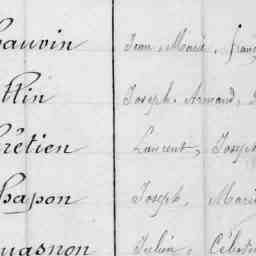 auvin Jean, Marie, franç
ttin Joseph, Armand, J
rétien Laurent, Joseph
hapon Joseph, Mari
uagnon Julien, Célest